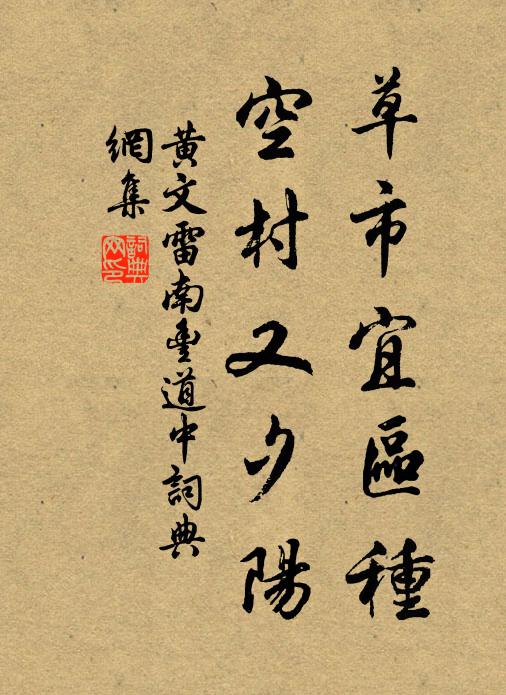 草市宜區種
空村又夕陽
黄文雷南豊道中詞典
網集
詞典
网印